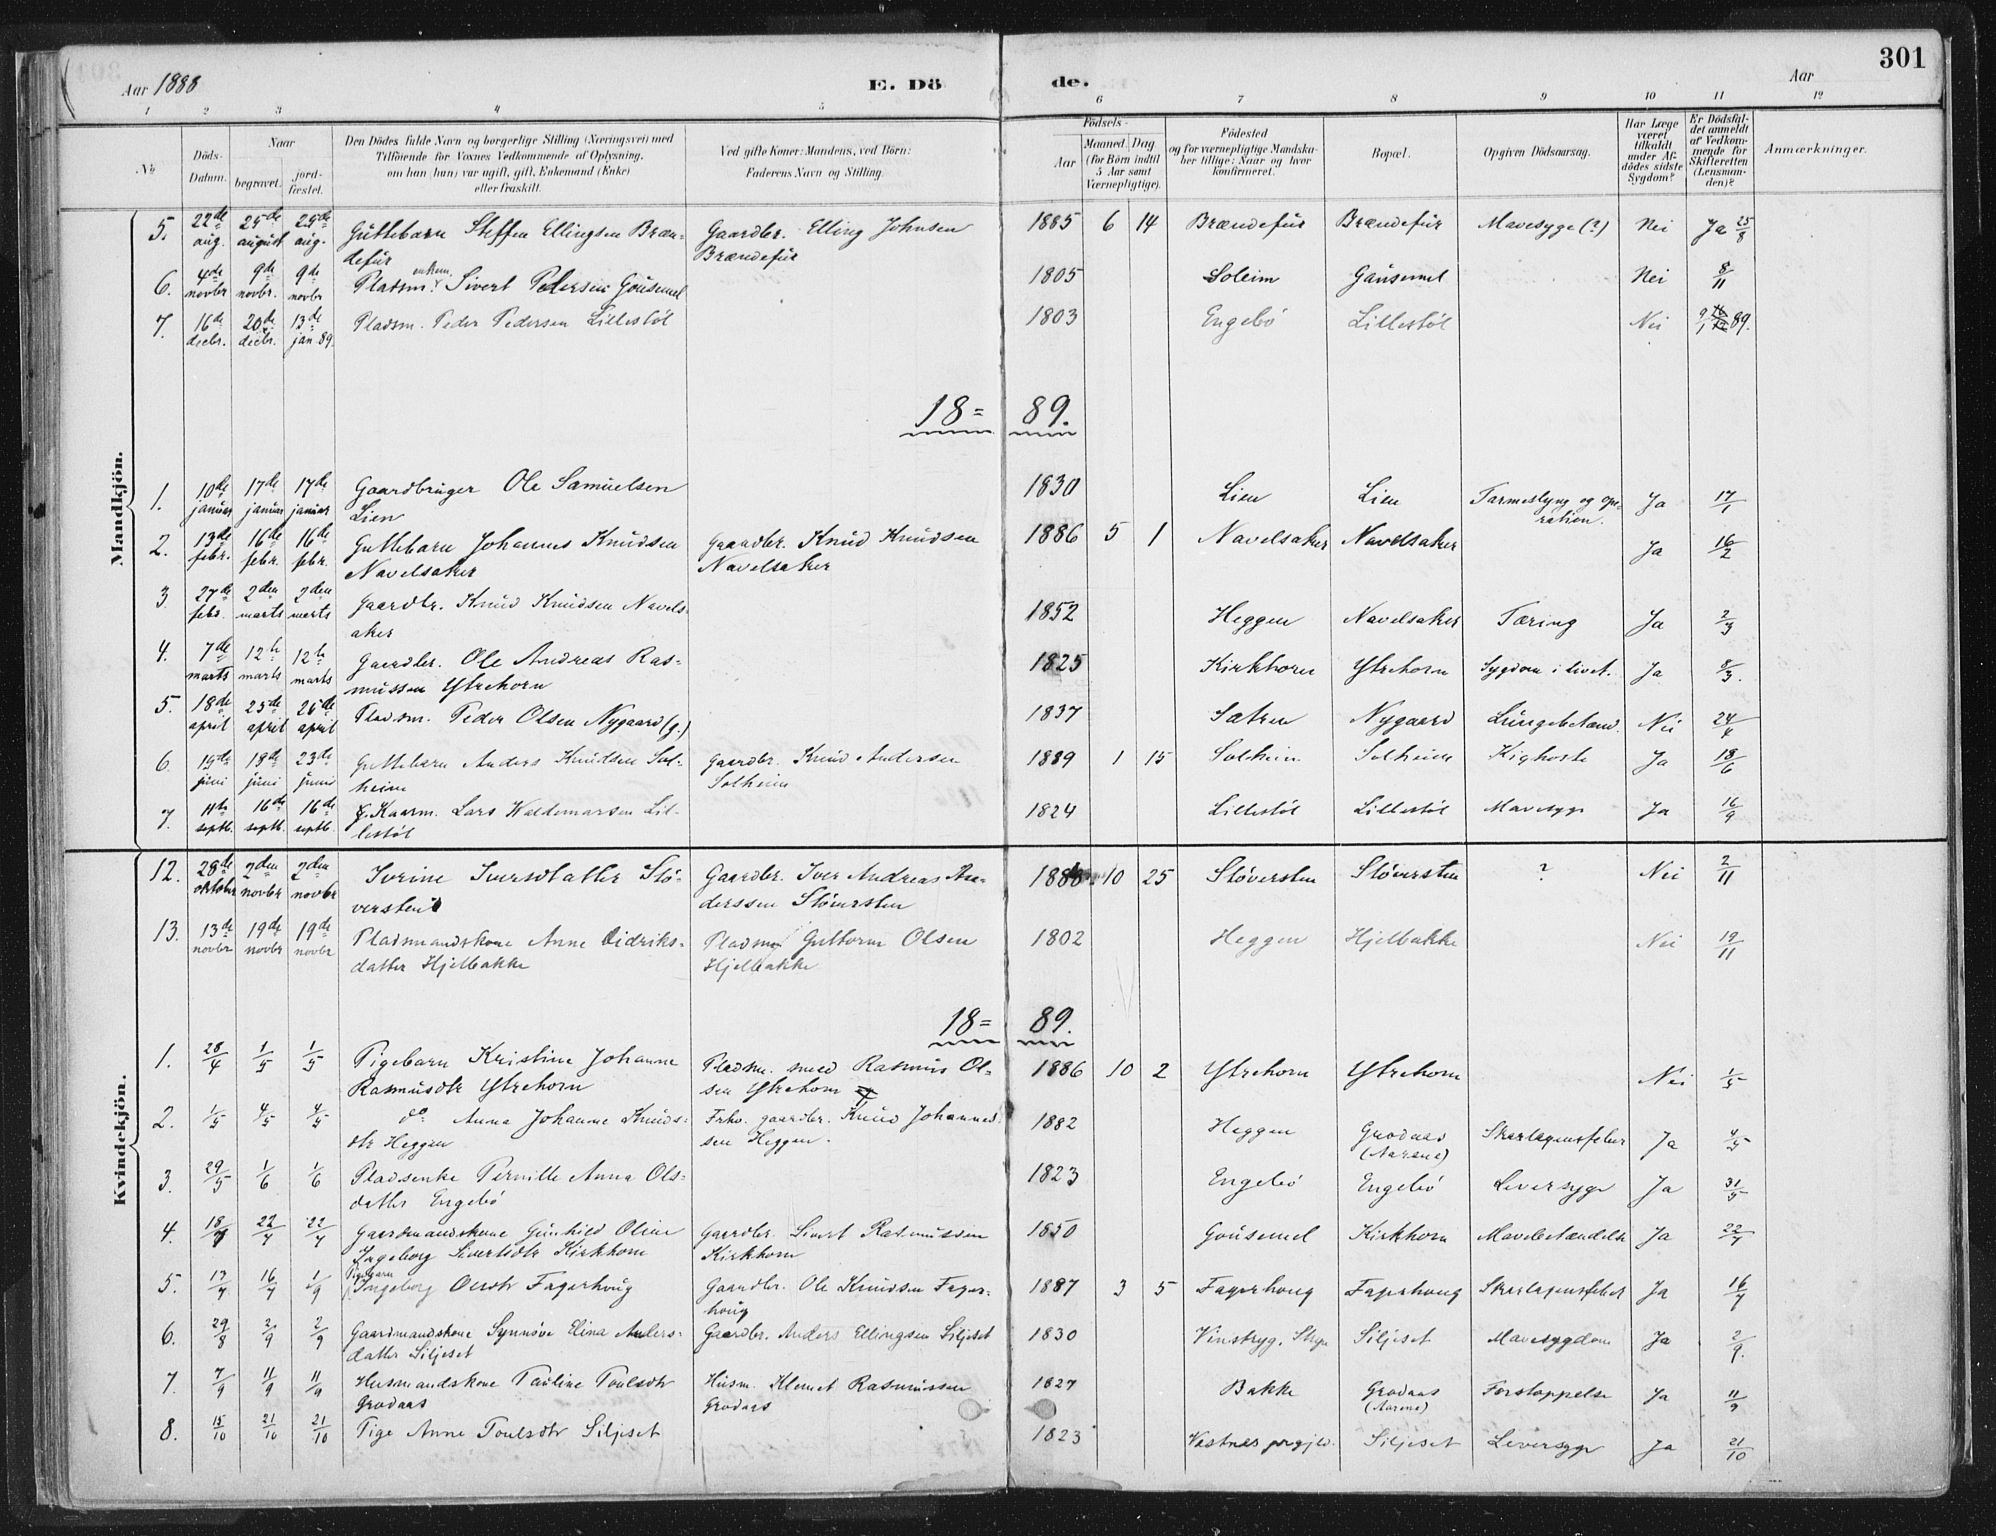 301
Aar 1888 E. Dö de. Aar
1 2 3 4 5 6 7 8 9 10 11 12
No
Naar
Döds-Datum. begravet. jord-fæstet.
Den Dödes fulde Navn og borgerlige Stilling (Næringsvei) med
Tilföiende for Voxnes Vedkommende af Oplysning,
om han (hun) var ugift, gift, Enkemand (Enke)
eller fraskilt.
Ved gifte Koner: Mandens, ved Börn:
Faderens Navn og Stilling.
Födsels-
Aar Maaned. Dag
(for Börn indtil
5 Aar samt
Værnepligtige).
Födested
og for værnepligtige Mandska-
ber tillige: Naar og hvor
konfirmeret.
Bopæl.
Opgiven Dödsaarsag.
Har Læge
været
tilkaldt
under Af-
dödes sidste
Sygdom?
Er Dödsfal-
det anmeldt
af Vedkom-
mende for
Skifteretten
(Lensman-
den)?
Anmærkninger.
Mandkjön.
5. 22de aug. 25de august 25de aug. Guttebarn Steffen Ellingsen Bræn-
defur Gaardbr. Elling Johnsen
Brændefur 1885 6 14 Brændefur Brændefur Mavesyge (?) Nei Ja 25/8
6. 4de novbr 9de novbr. 9de novbr Pladsm. enkem. Sivert Pedersen Gousemel 1805 Soleim Gausemel Nei 8/11
7. 16de decbr. 20de decbr. 13de jan 89. Pladsm. Peder Pedersen Lillestöl 1803 Engebö Lillestöl Nei 9/1 89.
18= 89.
1. 10de januar 17de januar 17de januar Gaardbruger Ole Samuelsen
Lien 1830 Lien Lien Tarmeslyng og ope-
ration. Ja 17/1
2. 13de febr. 16de febr. 16de febr. Guttebarn Johannes Knudsen
Navelsaker Gaardbr. Knud Knudsen
Navelsaker 1886 5 1 Navelsaker Navelsaker Ja 16/2
3. 27de febr. 2den marts 2den marts Gaardbr. Knud Knudsen Navels-
aker 1852 Heggen Navelsaker Tæring Ja 2/3
4. 7de marts 12te marts 12te marts Gaardbr. Ole Andreas Ras-
mussen Ytrehorn 1825 Kirkhorn Ytrehorn Sygdom i livet. Ja 8/3.
5. 18de april 25de april 26de april Pladsm. Peder Olsen Nygaard (g.) 1837 Sætren Nygaard Lungebetænd. Nei 24/4
6. juni 18de juni 23de juni Guttebarn Anders Knudsen Sol-
heim Gaardbr. Knud Andersen
Solheim 1889 1 15 Solheim Solheim Kighoste Ja 18/6
7. 11te septb. 16de septb. 16de septb. f. Kaarm. Lars Waldemarsen Lil-
lestöl 1824 Lillestöl Lillestöl Mavesyge Ja 16/9
Kvindekjön.
12. 28de oktober 2den novbr 2den novbr Iverine Iversdatter Stö-
versten Gaardbr. Iver Andreas An-
derssen Stöversten 1886 10 25 Stöversten Stöversten ? Nei 2/11
13. 13de novbr 19de novbr 19de novbr Pladsmandskone Anne Didriks-
datter Hjelbakke Pladsm. Guttorm Olsen
Hjelbakke 1802 Heggen Hjelbakke Nei 19/11
18= 89.
1. 28/4 1/5 1/5 Pigebarn Kristine Johanne
Rasmusdtr Ytrehorn Pladsm. smed Rasmus Ol-
sen Ytrehorn 1886 10 2 Ytrehorn Ytrehorn Nei 1/5
2. 1/5 4/5 4/5 do. Anna Johanne Knuds-
dtr Heggen Frho. gaardbr. Knud Johannes-
sen Heggen. 1882 Heggen Grodaas
(Aarene) Skarlagensfeber Ja 4/5
3. 29/5 1/6 1/6 Pladsenke Pernille Anna Ols-
datter Engebö 1823 Engebö Engebö Leversyge Ja 31/5
4. 18/7 22/7 22/7 Gaardmandskone Gunhild Oline
Ingeborg Sivertsdtr Kirkhorn Gaardbr. Sivert Rasmussen
Kirkhorn 1850 Gousemel Kirkhorn Mavebetændelse Ja 22/7
5. 13/7 16/7 1/9 Pigebarn
Ingeborg Olesdtr Fagerhoug Gaardbr. Ole Knudsen Fager-
houg 1887 3 5 Fagerhoug Fagerhoug Skarlagensfeber Ja 16/7
6. 29/8 2/9 2/9 Gaardmandskone Synnöve Elina Anders-
datter Siljeset Gaardbr. Anders Ellingsen Siljeset 1830 Vinsryg, Stryn Siljeset Mavesygdom Ja 2/9.
7. 7/9 11/9 11/9 Husmandskone Pauline Poulsdtr
Grodaas Husm. Klemet Rasmussen
Grodaas 1827 Bakke Grodaas
(Aarene) Forstoppelse Ja 11/9
8. 15/10 21/10 21/10 Pige Anne Poulsdtr Siljeset 1823 Vestnes prgjld. Siljeset Leversyge Ja 21/10